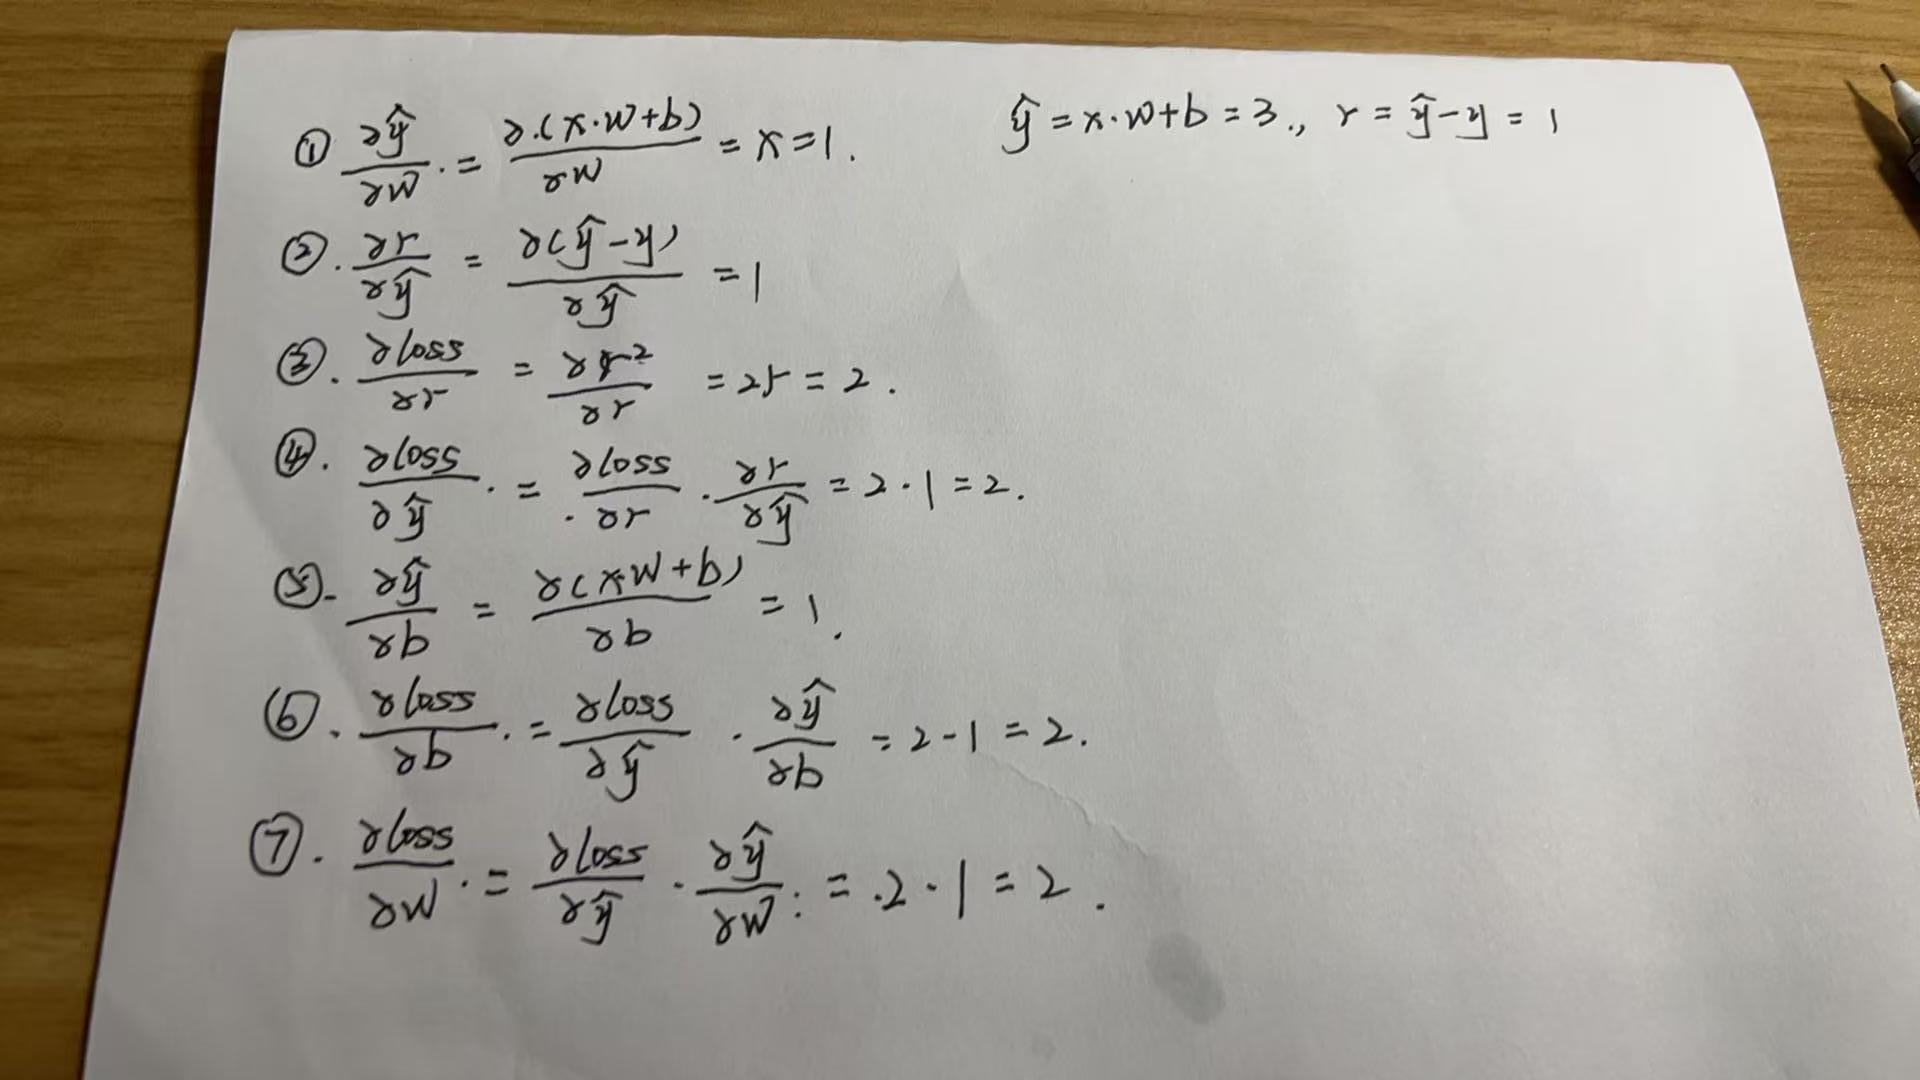 ① ∂ŷ/∂w · = ∂·(x·w+b)/∂w = x = 1.
ŷ = x·w+b = 3., r = ŷ-y = 1
②. ∂r/∂ŷ = ∂(ŷ-y)/∂ŷ = 1
③. ∂loss/∂r = ∂r²/∂r = 2r = 2.
④. ∂loss/∂ŷ · = ∂loss/∂r · ∂r/∂ŷ = 2·1 = 2.
⑤. ∂ŷ/∂b = ∂(x·w+b)/∂b = 1.
⑥. ∂loss/∂b · = ∂loss/∂ŷ · ∂ŷ/∂b = 2-1 = 2.
⑦. ∂loss/∂w · = ∂loss/∂ŷ · ∂ŷ/∂w : = .2·1 = 2.